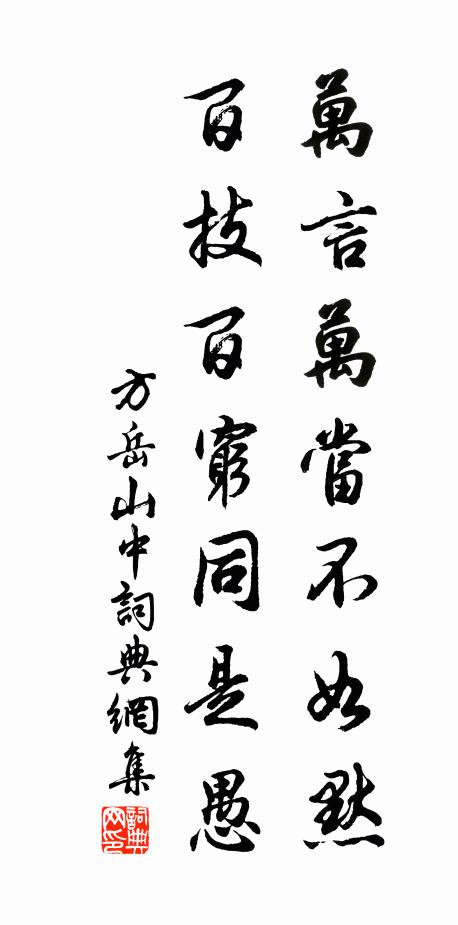 萬言萬當不如默
百技百窮同是愚
方岳山中詞典網集
詞典网印